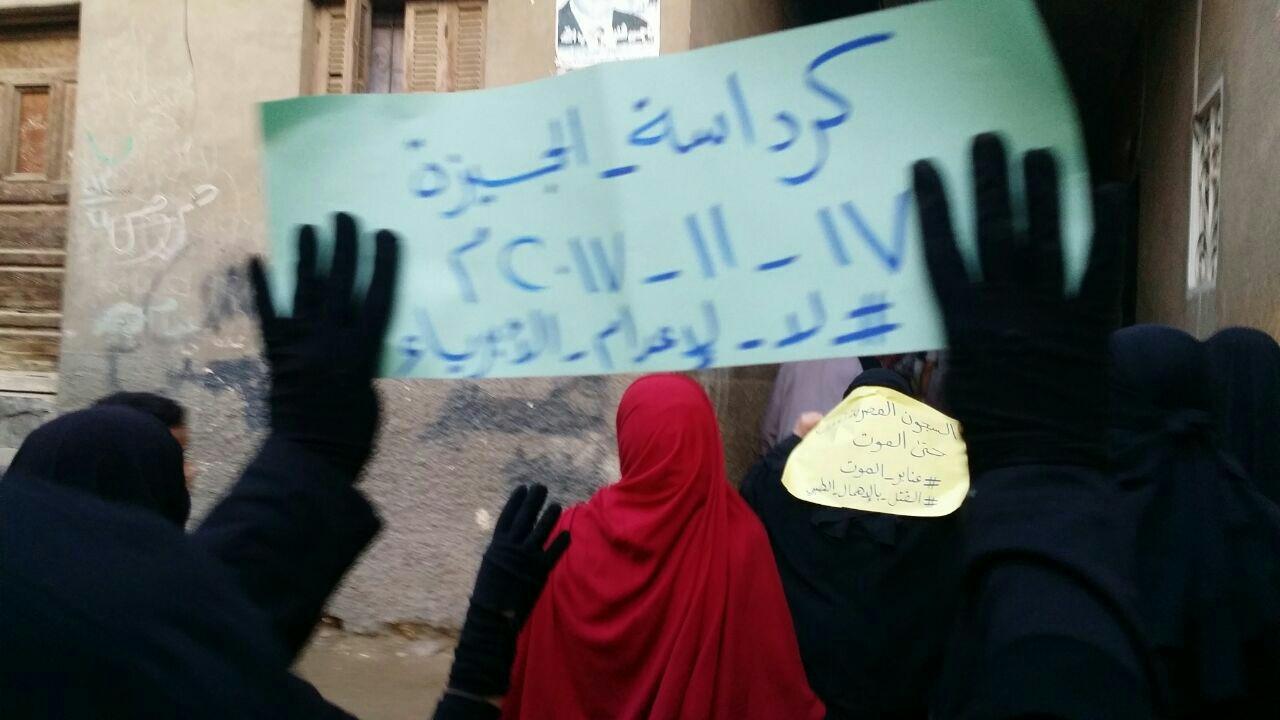 كرداسة_الجيزة
١٧ - ١١ - ٢٠١٧ م
#لا_لإعدام_الأبرياء
السجون المصرية
حتى الموت
#عنابر_الموت
#القتل_بالإهمال_الطبي